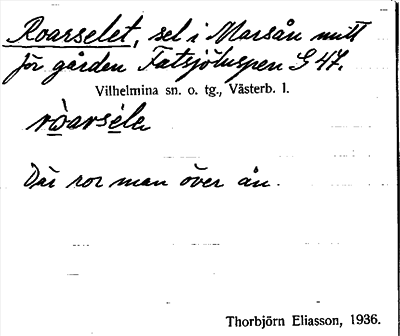 Roarselet, sel i Marsån mitt
för gården Fatsjöluspen G 47.
Vilhelmina sn. o. tg., Västerb. l.
ròarséla
Där ror man över ån.
Thorbjörn Eliasson, 1936.